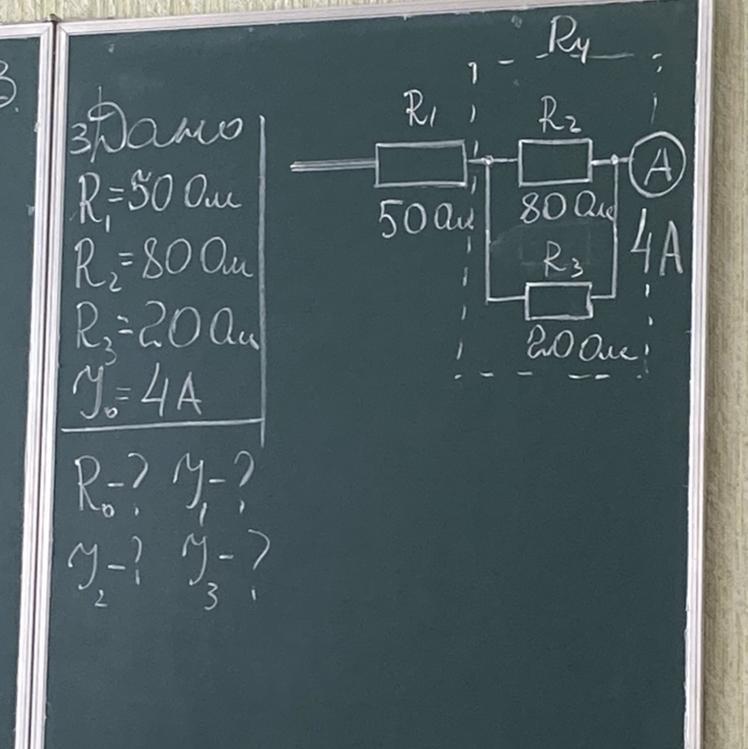 3) Дано
R₁=50 Ом
R₂=80 Ом
R₃=20 Ом
I₀=4А
R₀-? I₁-?
I₂-? I₃-?
R₄
R₁
R₂
A
50 Ом
80 Ом
4А
R₃
20 Ом